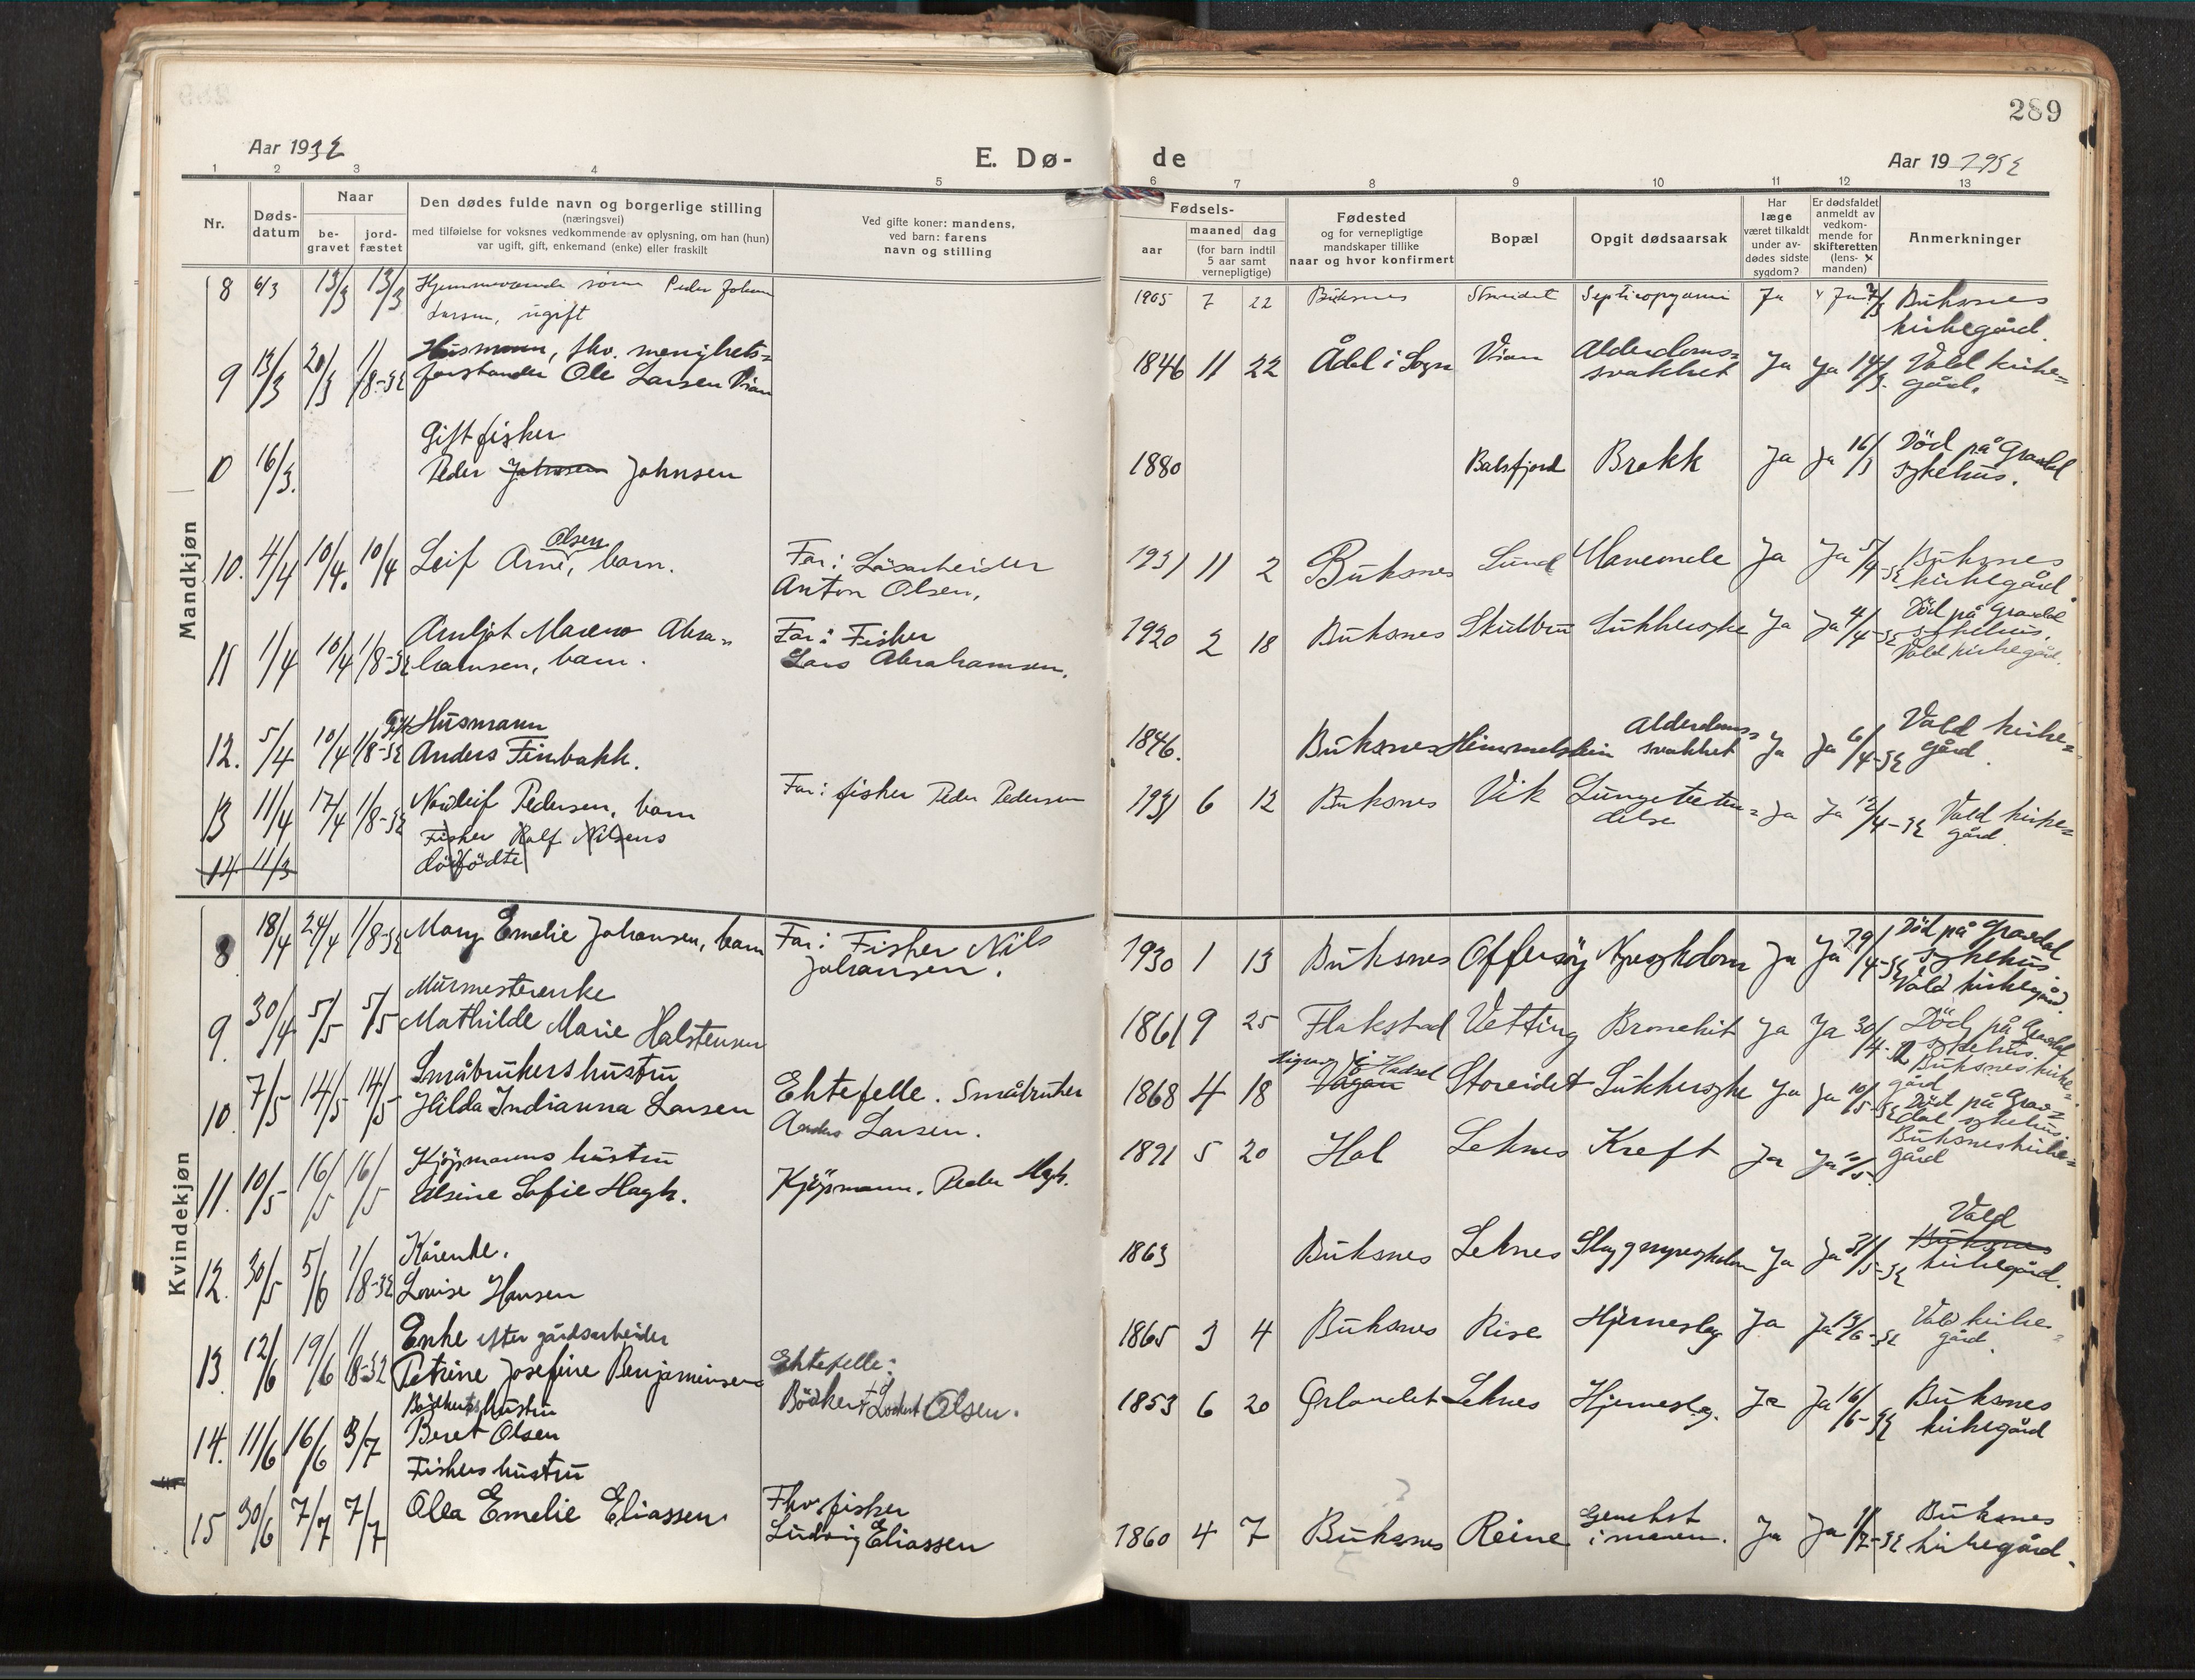 289
Aar 1932
E. Dø-
de
Aar 19 1932
1 2 3 4 5 6 7 8 9 10 11 12 13
Nr.
Døds-
datum
Naar
be-
gravet
jord-
fæstet
Den dødes fulde navn og borgerlige stilling
(næringsvei)
med tilføielse for voksnes vedkommende av oplysning, om han (hun)
var ugift, gift, enkemand (enke) eller fraskilt
Ved gifte koner: mandens,
ved barn: farens
navn og stilling
Fødsels-
aar
maaned dag
(for barn indtil
5 aar samt
vernepligtige)
Fødested
og for vernepligtige
mandskaper tillike
naar og hvor konfirmert
Bopæl
Opgit dødsaarsak
Har
læge
været tilkaldt
under av-
dødes sidste
sygdom?
Er dødsfaldet
anmeldt av
vedkom-
mende for
skifteretten
(lens-
manden)
Anmerkninger
Mandkjøn
8 6/3 13/3 13/3 Hjemmeværende sønn Peder Johan
Larsen, ugift
1905 7 22 Buksnes Storeidet Septicopyæmi Ja Ja 7/3 Buksnes
kirkegård.
9 13/3 20/3 1/8-32 Husmann, fhv. menighets=
forstander Ole Larsen Vian
1846 11 22 Ådal i Sogn Vian Alderdoms=
svakhet Ja Ja 14/3. Vald kirke=
gård.
10 16/3. Gift fisker
Peder Johnsen Johnsen
1880 Balsfjord Brokk Ja Ja 16/3 Död på Gravdal
sykehus.
10. 4/4 10/4. 10/4 Leif Arne Olsen, barn.
Far: Løsarbeider
Anton Olsen.
1931 11 2 Buksnes Lund Ja Ja 5/4-32 Buksnes
kirkegård.
11 1/4 10/4 1/8-32 Arnljot Abra=
hamsen, barn.
Far: Fisker
Lars Abrahamsen.
1920 2 18 Buksnes Skulbru Sukkersyke Ja Ja 4/4-32 Död på Gravdal
sykehus.
Vald kirkegård.
12. 5/4 10/4 1/8-32 Gift Husmann
Anders Finbakk.
1846. Buksnes Himmelstein Alderdoms=
svakhet Ja Ja 6/4-32 Vald kirke=
gård.
13 11/4 17/4 1/8-32 Nordleif Pedersen, barn
Far: fisker Peder Pedersen
1931 6 12 Buksnes Vik Lungebeten=
delse Ja Ja 12/4-32 Vald kirke=
gård.
14 11/3 Fisker Rolf Nilsens
dödfödte
Kvindekjøn
8 18/4 24/4 1/8-32 Mary Emelie Johansen, barn
Far: Fisker Nils
Johansen.
1930 1 13 Buksnes Offersöy Nyresykdom Ja Ja 19/4-32 Död på Gravdal
sykehus.
Vald kirkegård.
9. 30/4 5/5 5/5 Murmesterenke
Mathilde Marie Halstensen
1861 9 25 Flakstad Vetting Bronchit Ja Ja 30/4-32 Död på Gravdal
sykehus.
Buksnes kirke=
gård
10. 7/5 14/5 14/5 Småbrukers hustru
Hilda Indianna Larsen
Ektefelle. Småbruker
Anders Larsen.
1868 4 18 Vågan i Hadsel Storeidet Sukkersyke Ja Ja 10/5-32 Död på Grav=
dal sykehus.
Buksnes kirke=
gård
11. 10/5 16/5 16/5 Kjöpmanns hustru
Alsine Sofie Hagh.
Kjöpmann. Peder Hagh.
1891 5 20 Hol Leknes Kreft Ja Ja 10/5.
12. 30/5 5/6 1/8-32 Kårenke.
Lovise Hansen
1863 Buksnes Leknes Ja Ja 31/5-32 Vald
Buksnes
kirkegård.
13. 12/6 19/6 1/8-32 Enke efter gårdsarbeider
Petrine Josefine Benjaminsen
1865 3 4 Buksnes Rise Hjerneslag Ja Ja 13/6-32 Vald kirke=
gård.
14. 11/6 16/6 3/7 Bödkers hustru
Beret Olsen
Ektefelle:
Bödker Olsen.
1853 6 20 Ørlandet Leknes Hjerneslag. Ja Ja 16/6-32 Buksnes
kirkegård
15 30/6 7/7 7/7 Fiskers hustru
Olea Emelie Eliassen
Fhv. fisker
Ludvig Eliassen
1860 4 7 Buksnes Reine
i maven. Ja Ja 1/7-32 Buksnes
kirkegård.